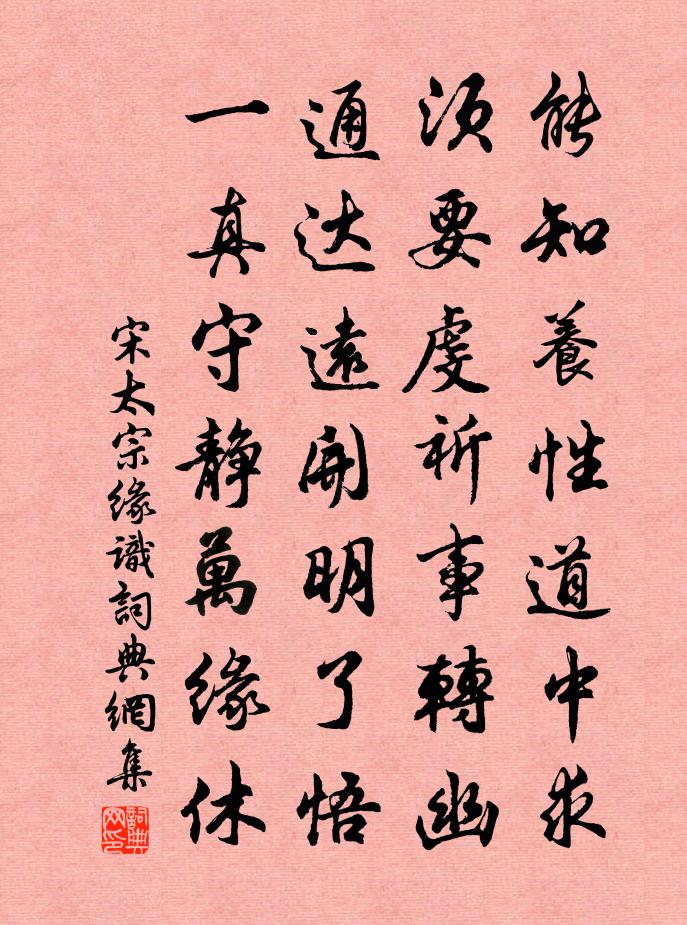 能知養性道中求
須要虔祈事轉幽
通达遠開明了悟
一真守静萬緣休
宋太宗緣識詞典網集
詞典网印